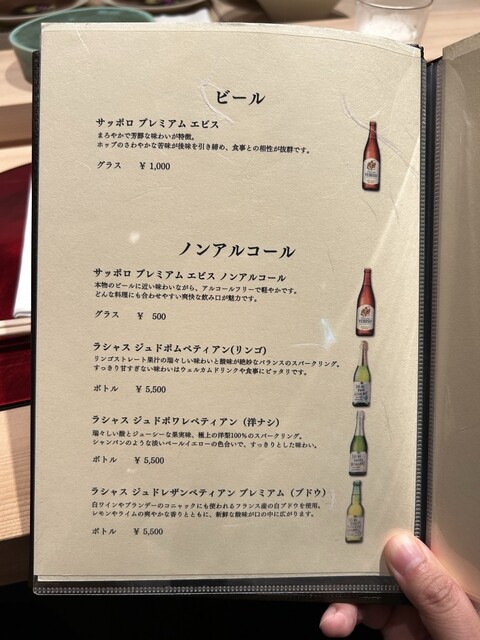 ビール
サッポロ プレミアム エビス
まろやかで芳醇な味わいが特徴。
ホップのさわやかな苦味が後味を引き締め、食事との相性が抜群です。
グラス ¥ 1,000
ノンアルコール
サッポロ プレミアム エビス ノンアルコール
本物のビールに近い味わいながら、アルコールフリーで軽やかです。
どんな料理にも合わせやすい爽快な飲み口が魅力です。
グラス ¥ 500
ラシャス ジュドポムペティアン(リンゴ)
リンゴストレート果汁の瑞々しい味わいと酸味が絶妙なバランスのスパークリング。
すっきり甘すぎない味わいはウェルカムドリンクや食事にピッタリです。
ボトル ¥ 5,500
ラシャス ジュドポワレペティアン（洋ナシ）
瑞々しい酸とジューシーな果実味、極上の洋梨100%のスパークリング。
シャンパンのような淡いペールイエローの色合いで、すっきりとした味わい。
ボトル ¥ 5,500
ラシャス ジュドレザンペティアン プレミアム（ブドウ）
白ワインやブランデーのコニャックにも使われるフランス産の白ブドウを使用。
レモンやライムの爽やかな香りとともに、新鮮な酸味が口の中に広がります。
ボトル ¥ 5,500